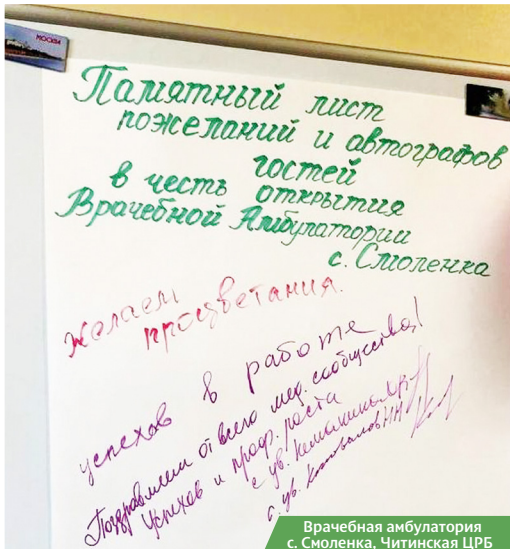 МОСКВА
Памятный лист
пожеланий и автографов
гостей
в честь открытия
Врачебной Амбулатории
с. Смоленка
Желаем
процветания.
успехов в работе
Поздравляем от всего мед. сообщества!
Успехов и проф. роста
с ув.
с ув. Коновалов НН
Врачебная амбулатория
с. Смоленка, Читинская ЦРБ